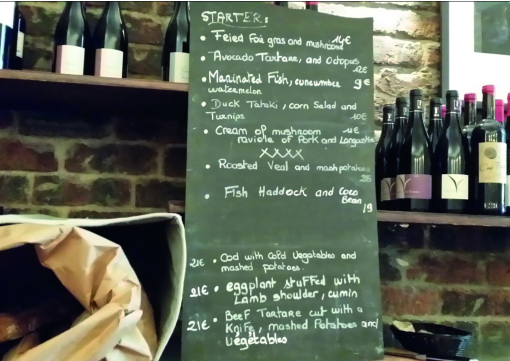 STARTER:
• Fried Foie gras and mushroom 14€
• Avocado Tartare, and Octopus
12€
• Marinated Fish, cuncumber 9€
watermelon
• Duck Tataki, corn Salad and
Turnips 10€
• Cream of mushroom 11€
raviole of Pork and Langoustine
XXXX
• Roasted Veal and mashpotatoes
• Fish Haddock and Coco
Bean
19
21€ • Cod with Cold Vegetables and
mashed potatoes.
21€ • eggplant stuffed with
Lamb shoulder, cumin
• Beef Tartare cut with a
21€ Knife, mashed Potatoes and
Vegetables